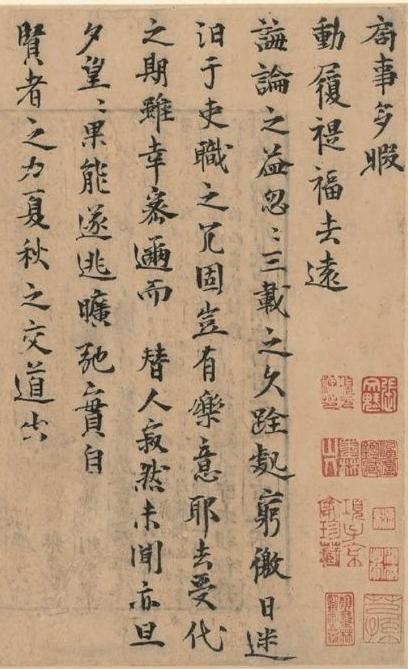 局事多暇
動履禔福去遠
誨論之益忽〻三載之久跧處窮徼日迷
汨于吏職之冗固豈有樂意耶去受代
之期雖幸密邇而 替人寂然未聞亦旦
夕望〻果能遂逃曠弛實自
賢者之力夏秋之交道出
項子京家珍藏